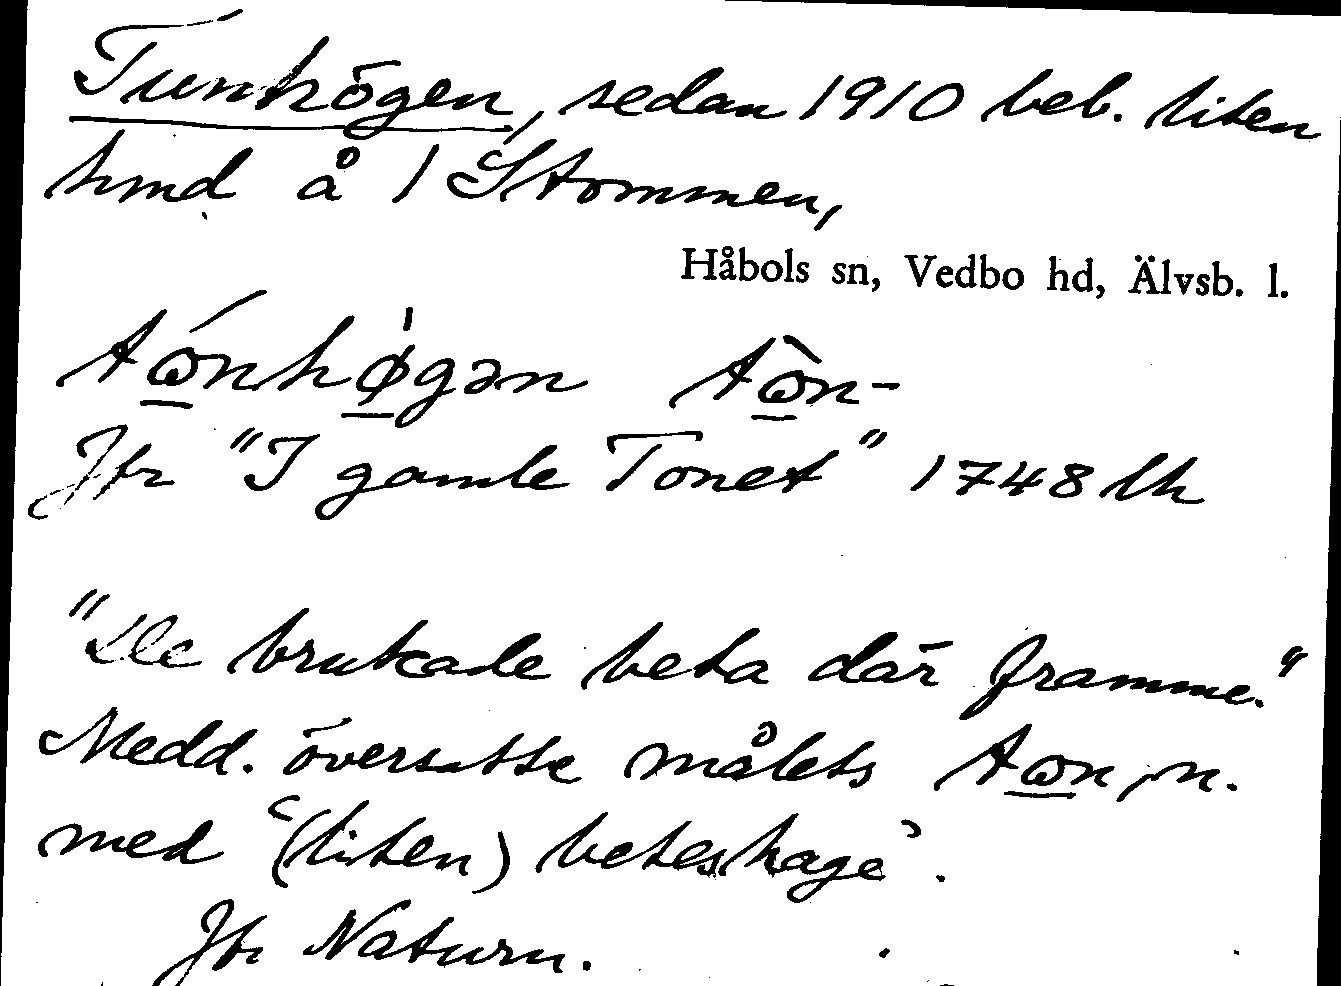 Tunhögen, sedan 1910 beb. liten
hmd å 1 Stommen,
Håbols sn, Vedbo hd, Älvsb. l.
tώnhø̍gən tὼn-
Jfr "I gamle Tonet" 1748 lh
"De brukade beta där framme."
Medd. översatte målets tωn, n.
med '(liten) beteshage'.
Jfr Naturn.